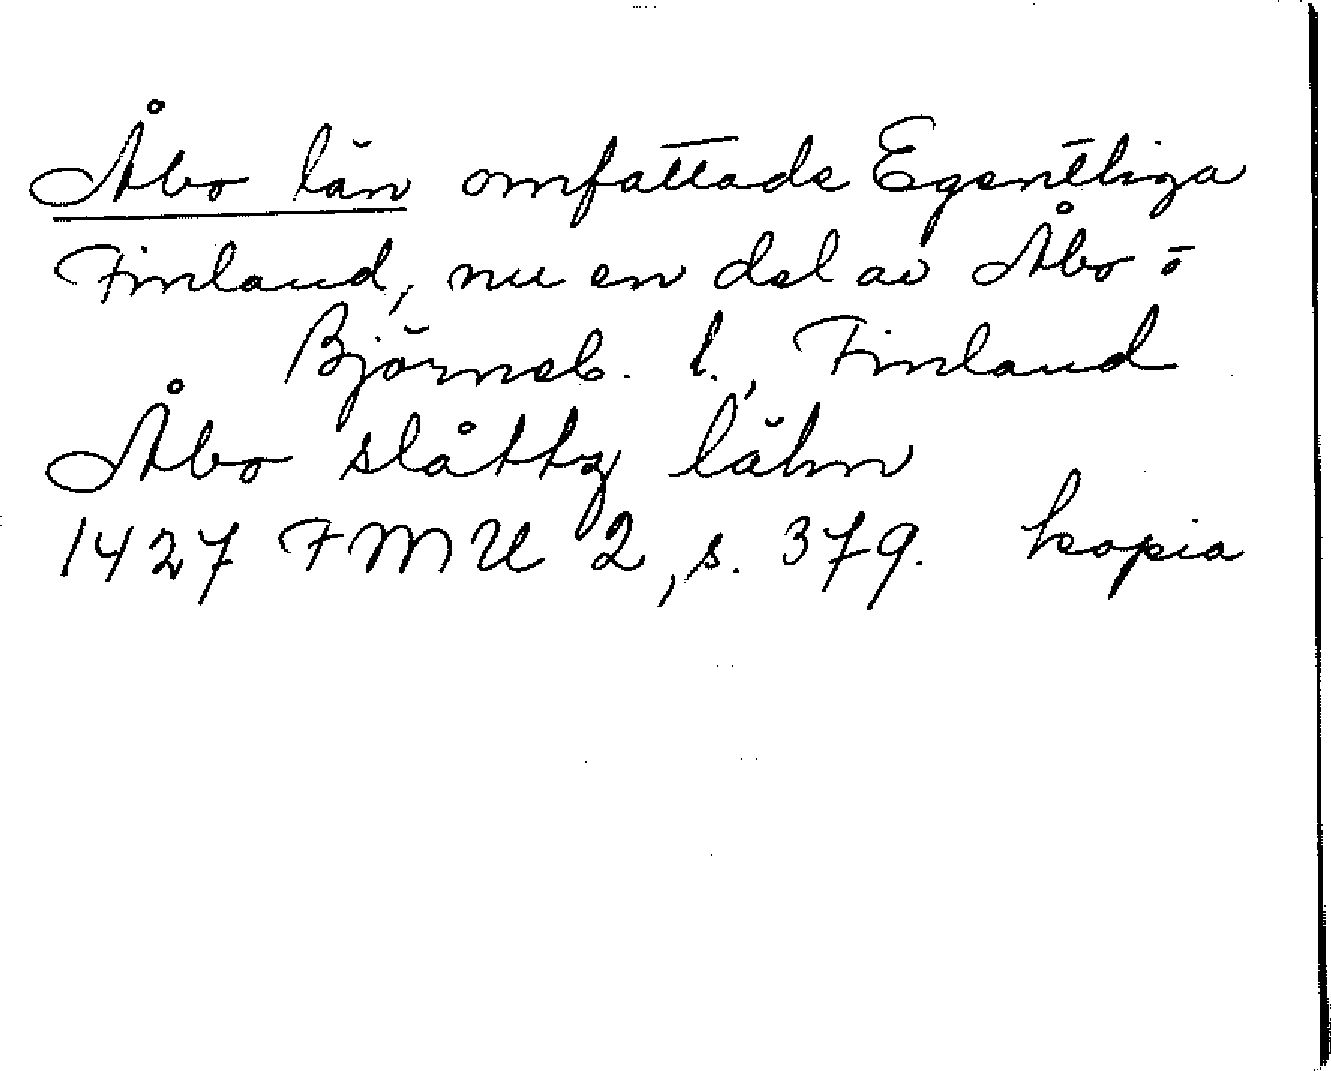 Åbo län omfattade Egentliga
Finland, nu en del av Åbo o
Björneb. l., Finland
Åbo slåttz lähn
1427 FMU 2, s. 379. kopia